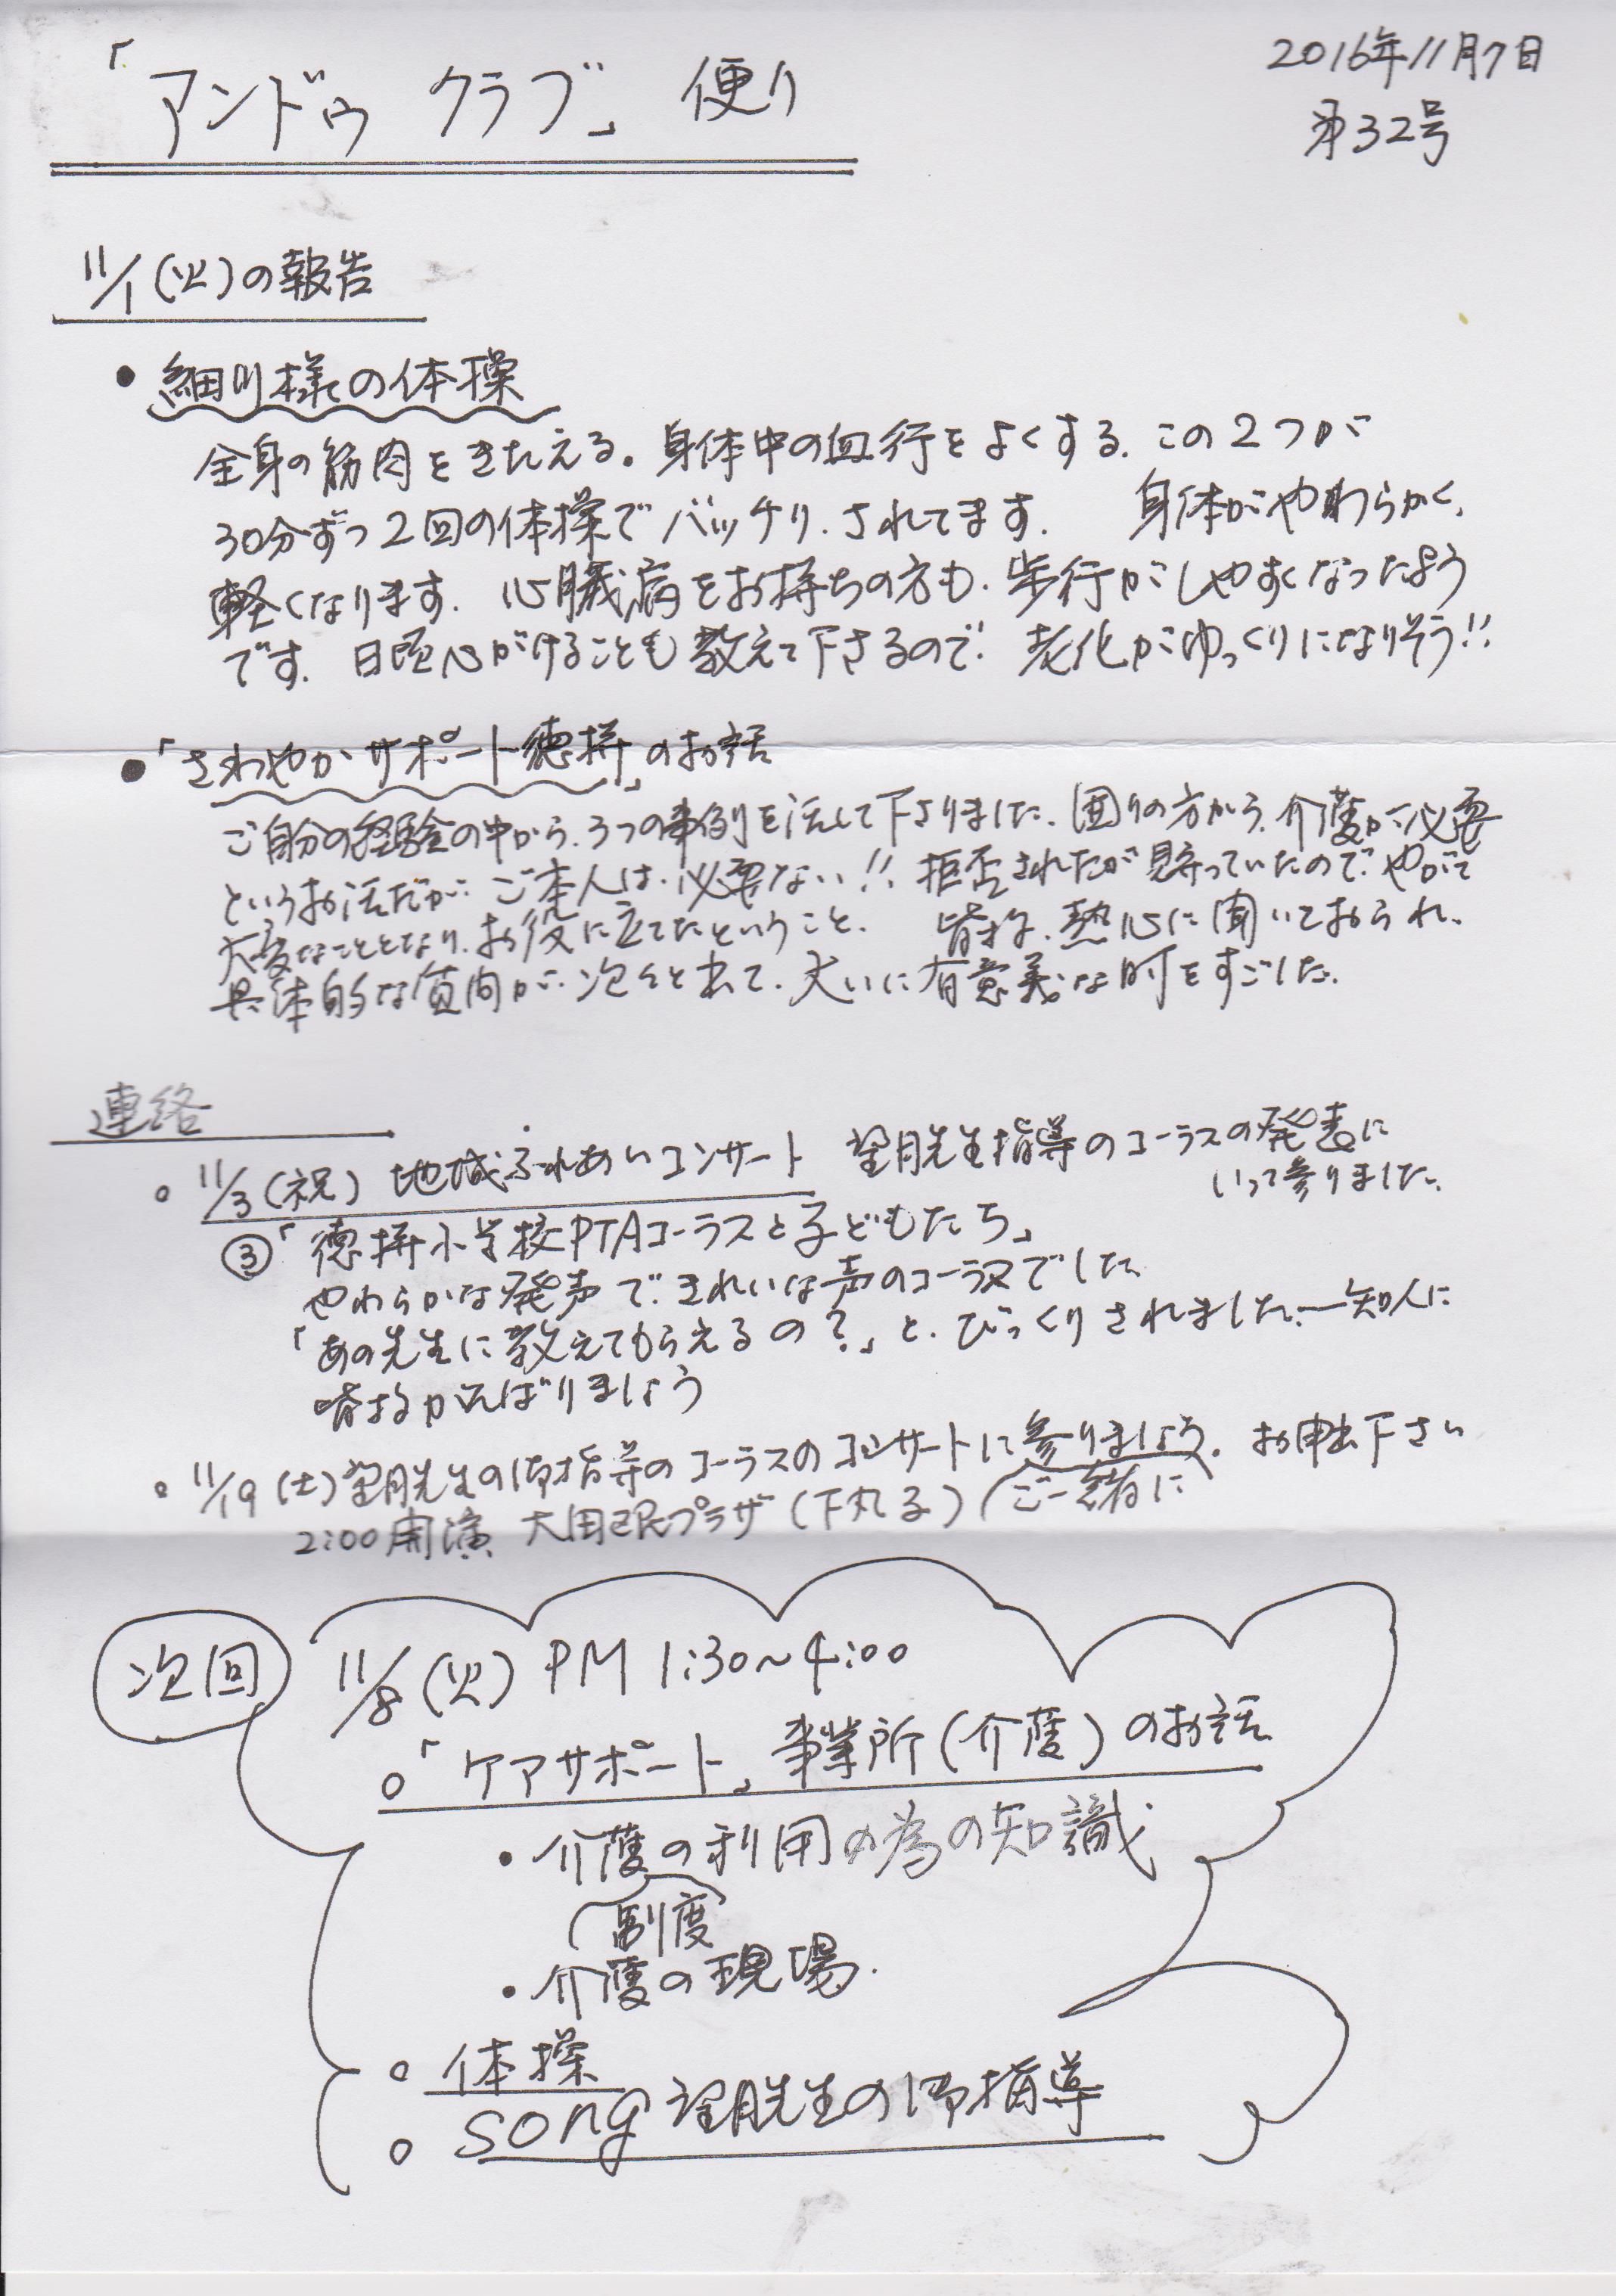 「アンドゥ クラブ」便り
2016年11月7日
第32号
11/1(火)の報告
• 細川様の体操
全身の筋肉をきたえる。身体中の血行をよくする. この2つが
30分ずつ2回の体操でバッチリ. されてます. 身体がやわらかく.
軽くなります. 心臓病をお持ちの方も. 歩行がしやすくなったよう
です. 日頃心がけることも教えて下さるので. 老化がゆっくりになりそう!!
• 「さわやかサポート徳持」のお話
ご自分の経験の中から. 3つの事例を話して下さりました. 囲りの方から. 介護が必要
というお話だが. ご本人は. 必要ない!! 拒否されたが見守っていたので. やがて
大変なこととなり. お役に立てたということ. 皆様. 熱心に聞いておられ.
具体的な質問が. 次々と出て. 大いに有意義な時をすごした.
連絡
○ 11/3(祝) 地域ふれあいコンサート 望月先生指導のコーラスの発表に
いって参りました.
③「徳持小学校PTAコーラスと子どもたち」
やわらかな発声で. きれいな声のコーラスでした
「あの先生に教えてもらえるの?」と. びっくりされました. ー知人に
皆様がんばりましょう
○ 11/19(土)望月先生の御指導のコーラスのコンサートに参りましょう. お申出下さい
2:00開演 大田区民プラザ(下丸子) ご一緒に
次回 11/8(火) PM 1:30~4:00
○「ケアサポート」事業所(介護)のお話
• 介護の利用の為の知識
制度
• 介護の現場.
○ 体操
○ song 望月先生の御指導